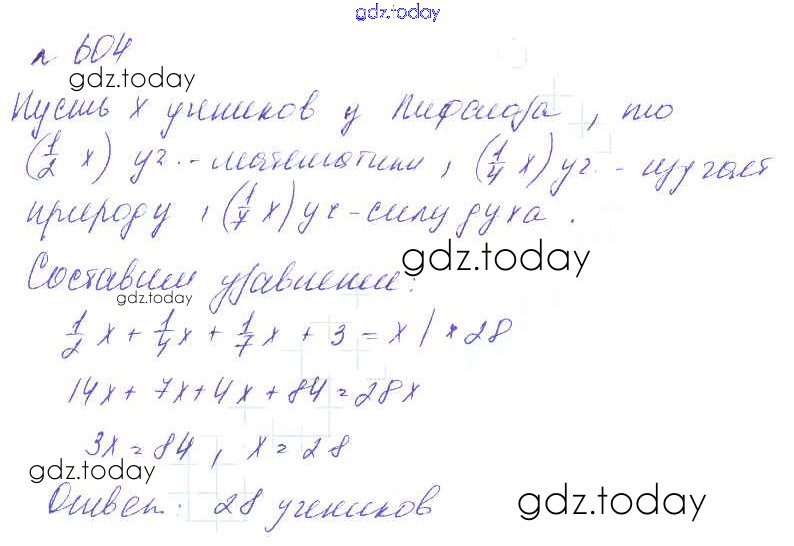 gdz.today
n 604
gdz.today
Пусть x учеников у Пифагора, то
(1/2 x) уч. - математики, (1/4 x) уч. - изучает
природу, (1/7 x) уч - силу духа.
gdz.today
Составим уравнение:
gdz.today
1/2 x + 1/4 x + 1/7 x + 3 = x | * 28
14x + 7x + 4x + 84 = 28x
3x = 84, x = 28
gdz.today
Ответ: 28 учеников
gdz.today